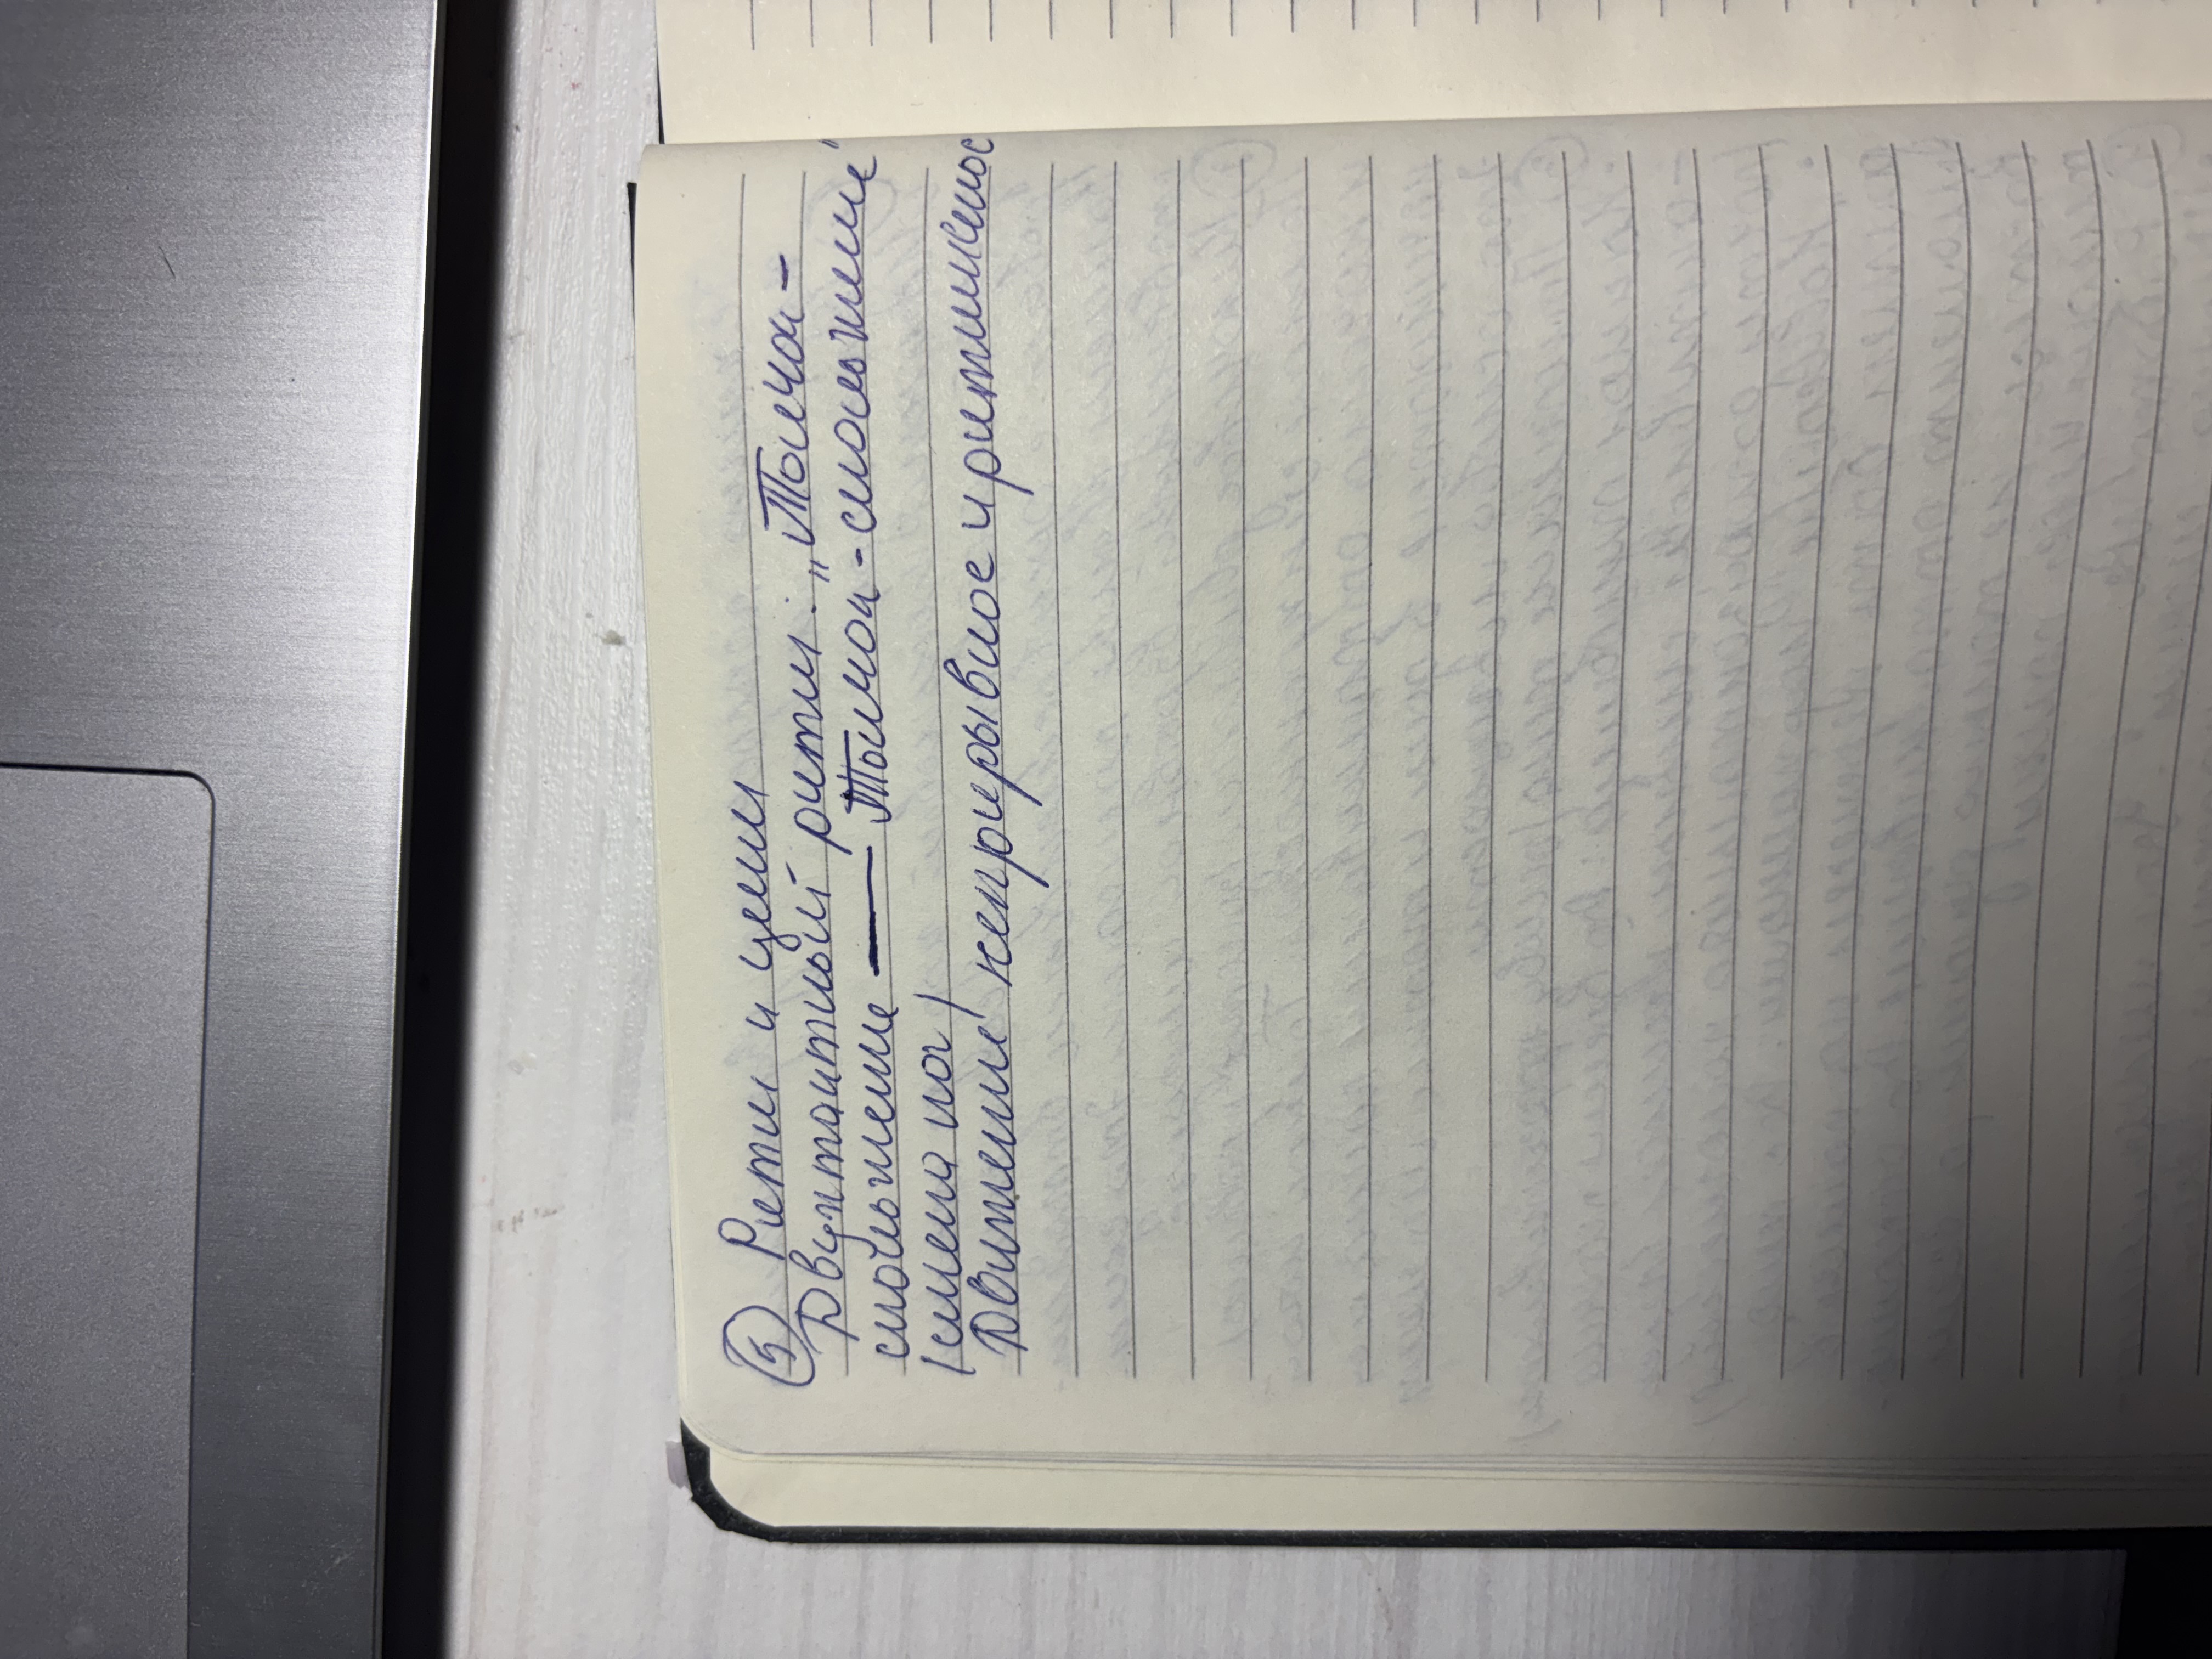 ⑤ Ритм и
Двутактный ритм: „Толчок -
скольжение — Толчок - скольжение"
(смена ног)
Движение непрерывное и ритмичное